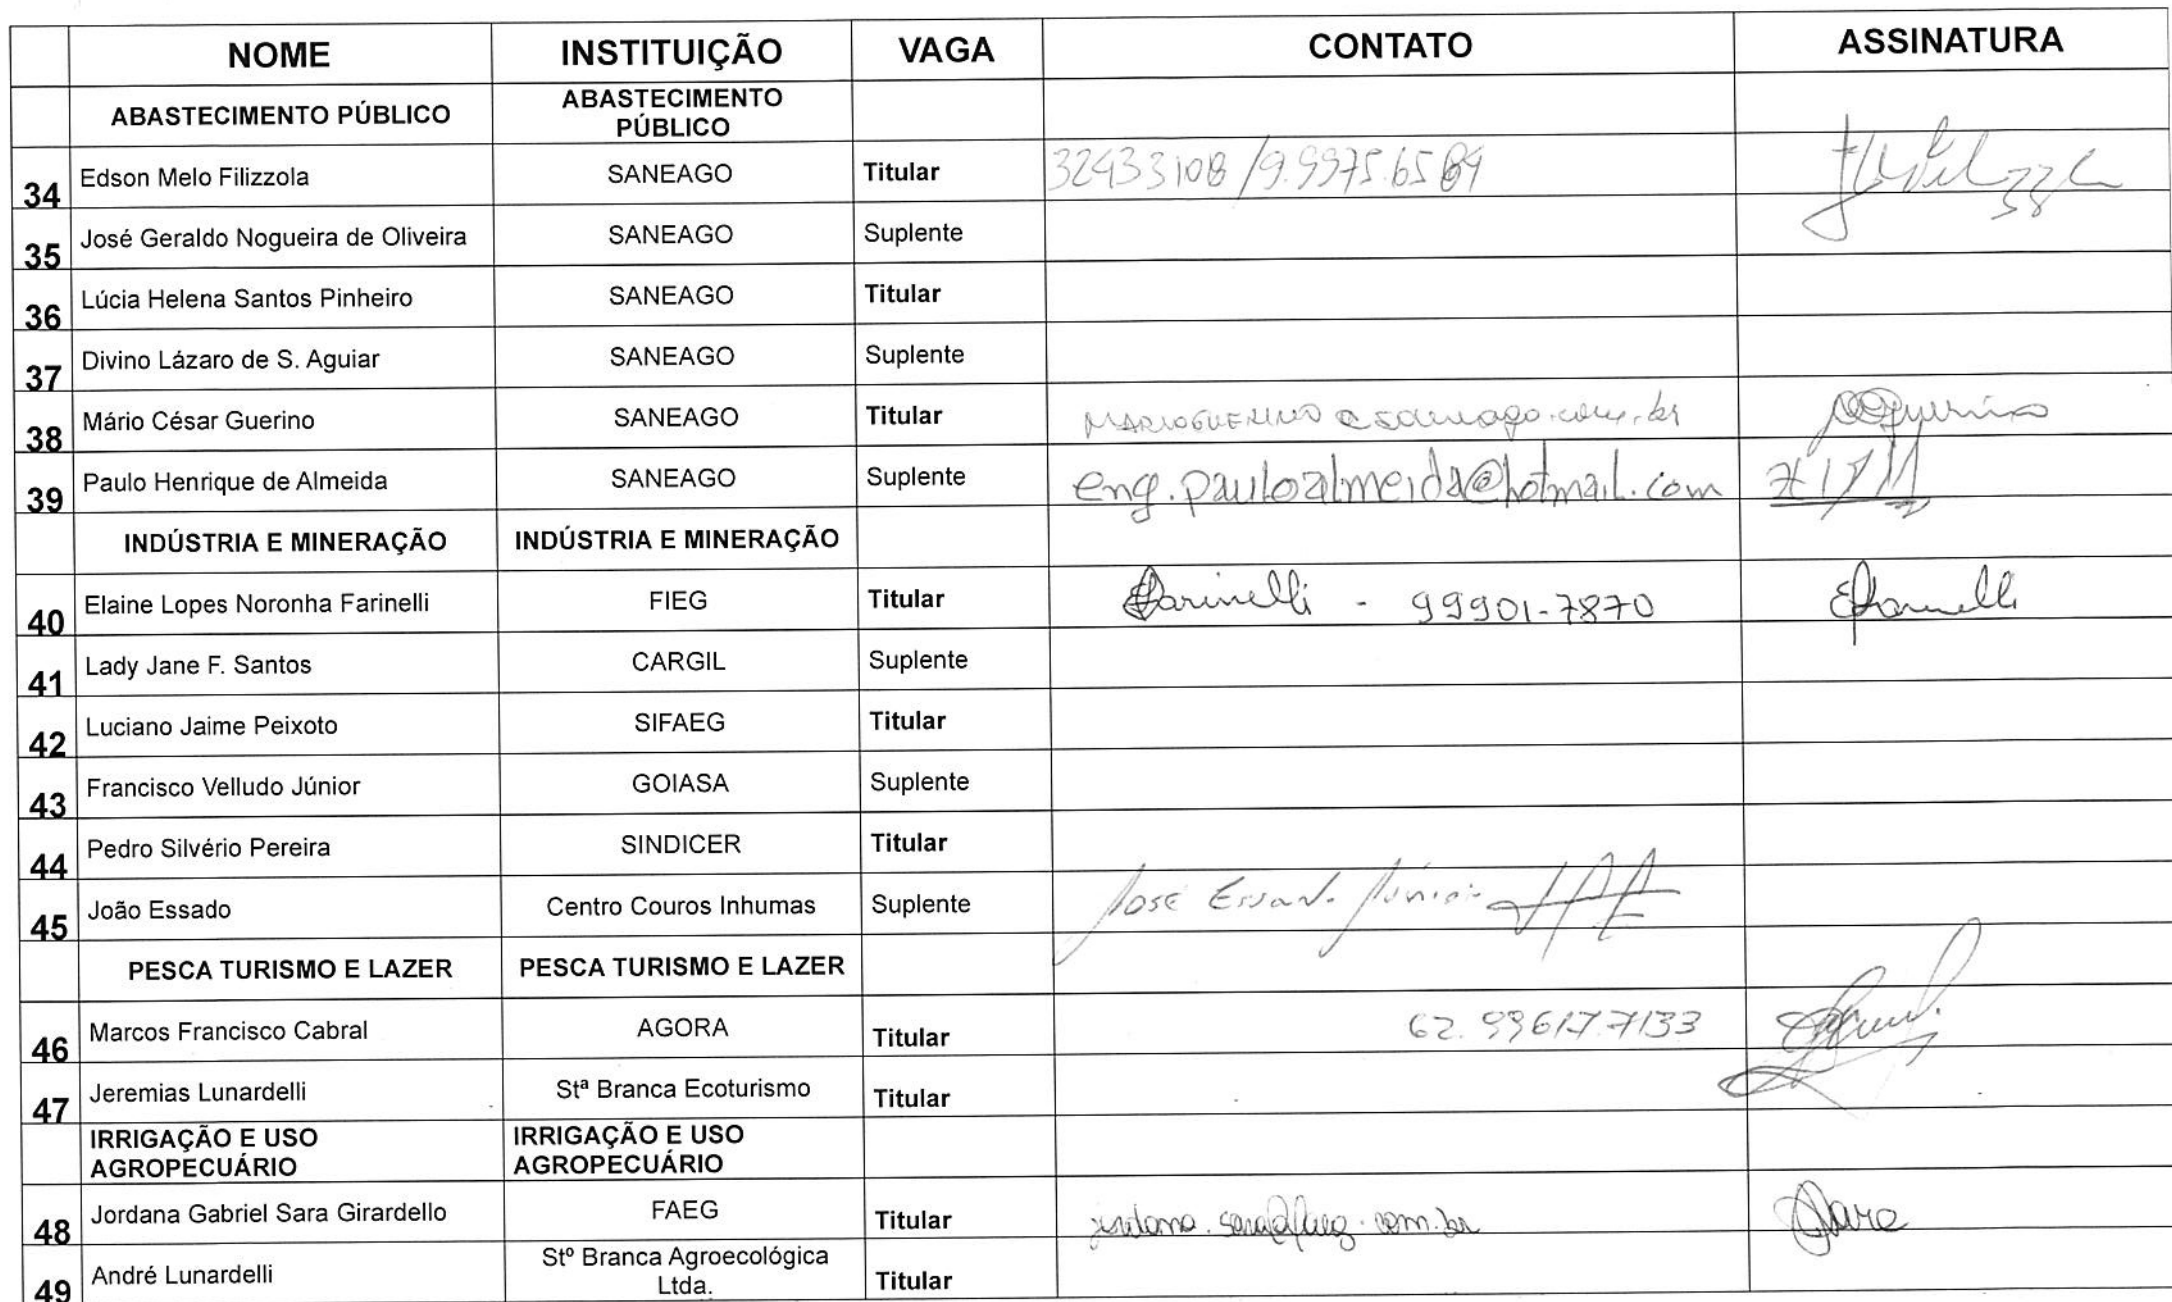 NOME INSTITUIÇÃO VAGA CONTATO ASSINATURA
ABASTECIMENTO PÚBLICO ABASTECIMENTO PÚBLICO
34 Edson Melo Filizzola SANEAGO Titular 32433108 / 9.9975.6584
35 José Geraldo Nogueira de Oliveira SANEAGO Suplente
36 Lúcia Helena Santos Pinheiro SANEAGO Titular
37 Divino Lázaro de S. Aguiar SANEAGO Suplente
38 Mário César Guerino SANEAGO Titular MARIOGUERINO@saneago.com.br
39 Paulo Henrique de Almeida SANEAGO Suplente eng.pauloalmeida@hotmail.com
INDÚSTRIA E MINERAÇÃO INDÚSTRIA E MINERAÇÃO
40 Elaine Lopes Noronha Farinelli FIEG Titular EFarinelli - 99901-7870 EFarinelli
41 Lady Jane F. Santos CARGIL Suplente
42 Luciano Jaime Peixoto SIFAEG Titular
43 Francisco Velludo Júnior GOIASA Suplente
44 Pedro Silvério Pereira SINDICER Titular
45 João Essado Centro Couros Inhumas Suplente José Essado Júnior
PESCA TURISMO E LAZER PESCA TURISMO E LAZER
46 Marcos Francisco Cabral AGORA Titular 62. 99617.7133
47 Jeremias Lunardelli Stª Branca Ecoturismo Titular
IRRIGAÇÃO E USO AGROPECUÁRIO IRRIGAÇÃO E USO AGROPECUÁRIO
48 Jordana Gabriel Sara Girardello FAEG Titular jordana.sara@faeg.com.br JSara
49 André Lunardelli Stº Branca Agroecológica Ltda. Titular